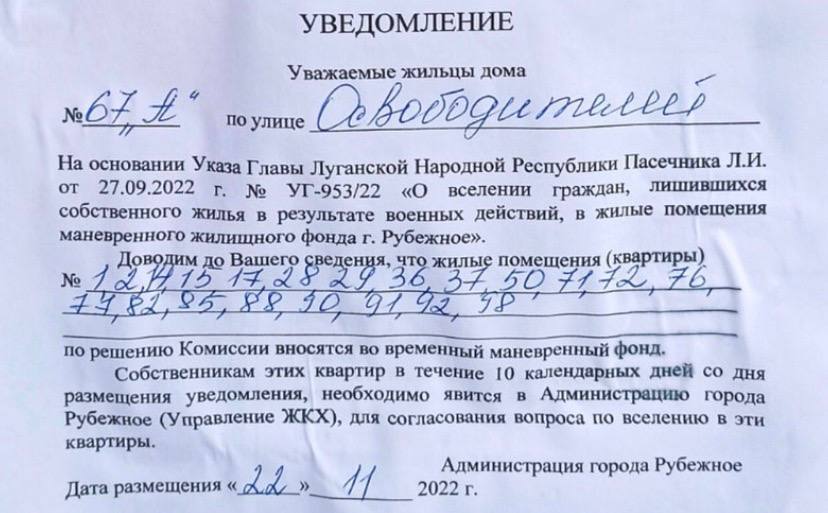 УВЕДОМЛЕНИЕ
Уважаемые жильцы дома
№ 67 „А“ по улице Освободителей
На основании Указа Главы Луганской Народной Республики Пасечника Л.И.
от 27.09.2022 г. № УГ-953/22 «О вселении граждан, лишившихся
собственного жилья в результате военных действий, в жилые помещения
маневренного жилищного фонда г. Рубежное».
Доводим до Вашего сведения, что жилые помещения (квартиры)
№ 1, 2, 14, 15, 17, 28, 29, 36, 37, 50, 71, 72, 76,
82, 85, 88, 90, 91, 92, 98
по решению Комиссии вносятся во временный маневренный фонд.
Собственникам этих квартир в течение 10 календарных дней со дня
размещения уведомления, необходимо явится в Администрацию города
Рубежное (Управление ЖКХ), для согласования вопроса по вселению в эти
квартиры.
Администрация города Рубежное
Дата размещения «22» 11 2022 г.